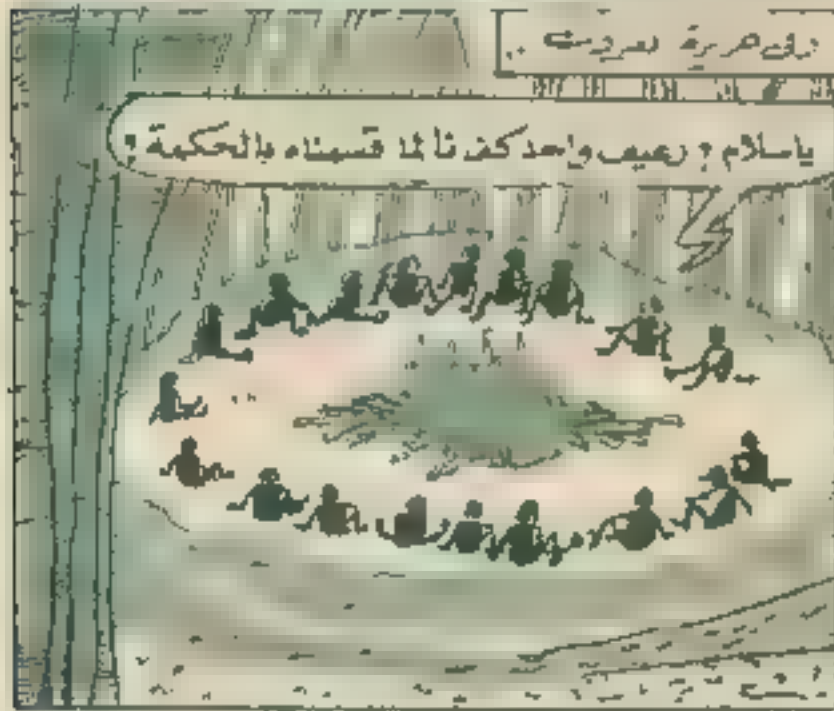 وفى
يا سلام ? رغيف واحد كفانا لما قسمناه بالحكمة !